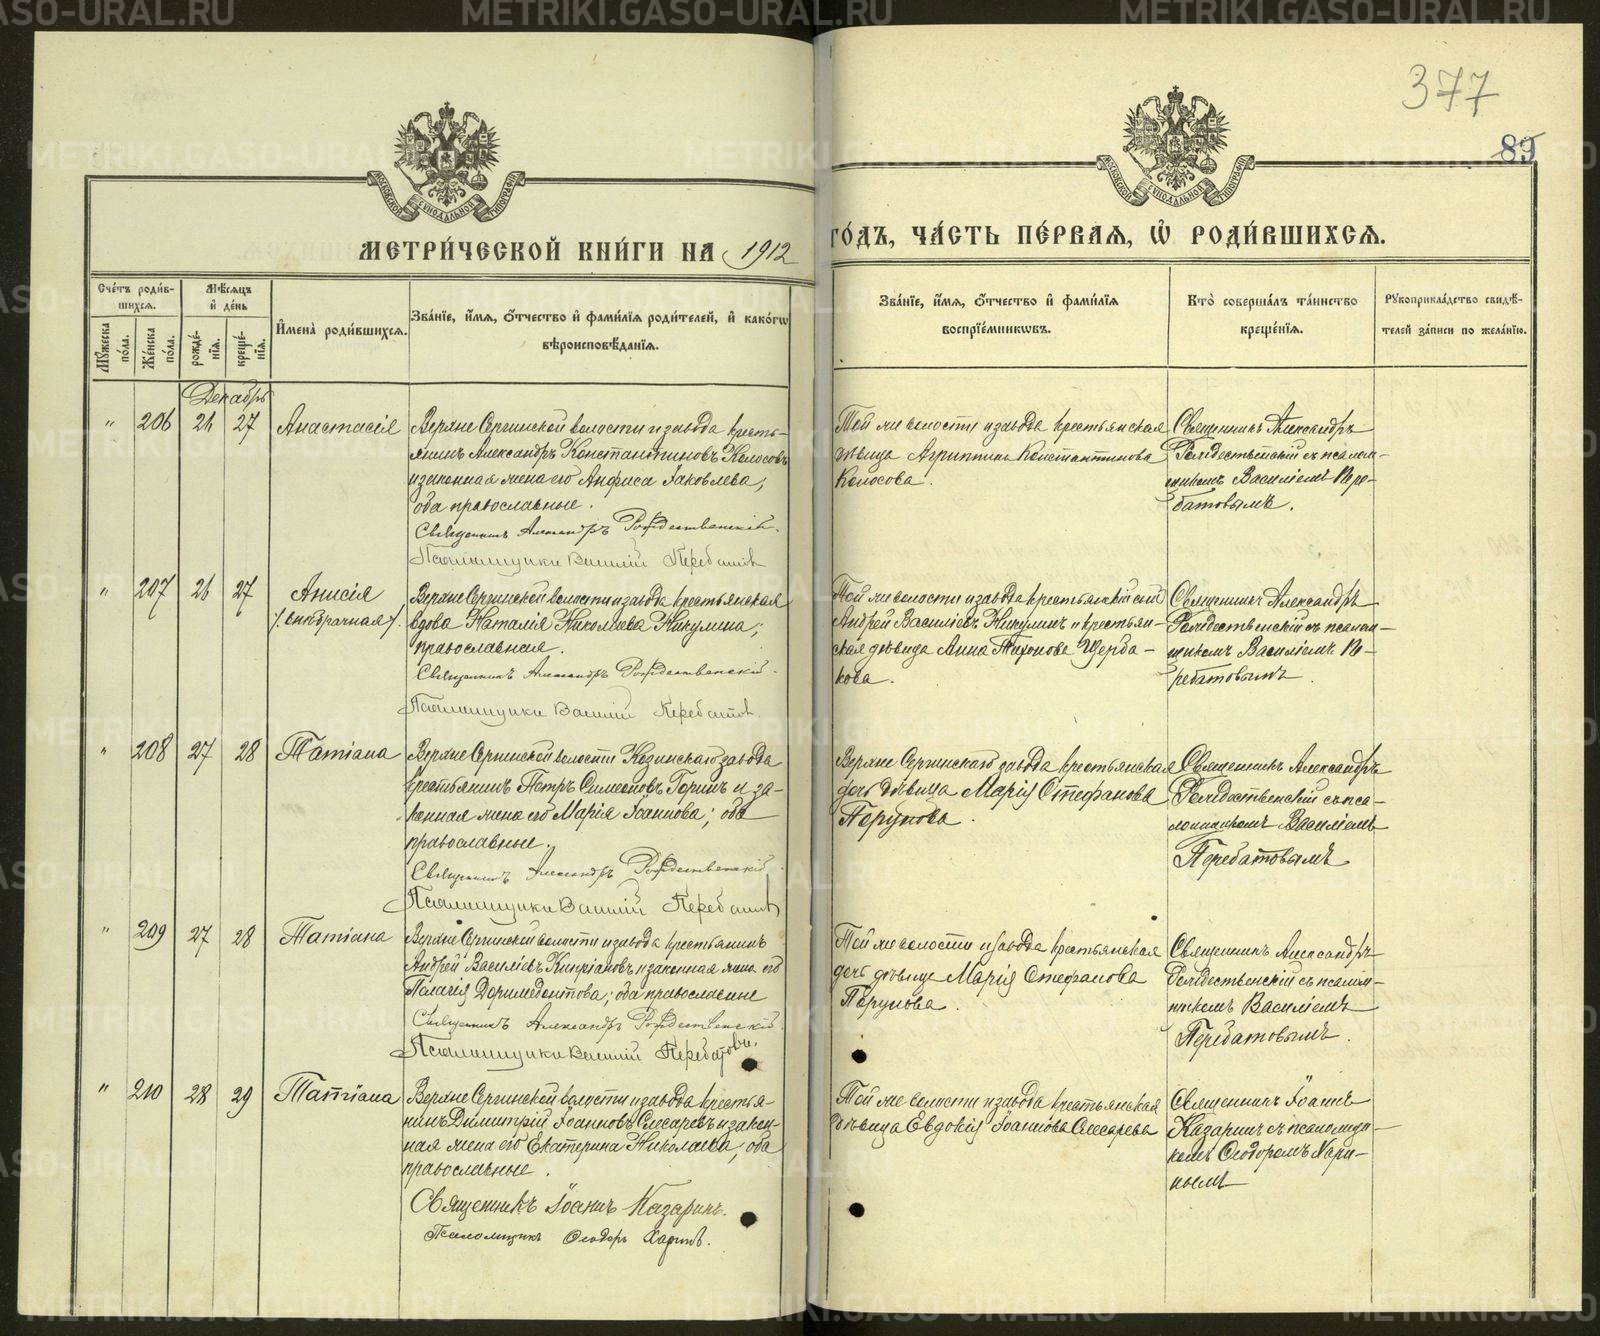 METRIKI.GASO-URAL.RU
377
89
МОСКОВСКОЙ СѴНОДАЛЬНОЙ ТИПОГРАФІИ
МОСКОВСКОЙ СѴНОДАЛЬНОЙ ТИПОГРАФІИ
МЕТРИ́ЧЕСКОЙ КНИ́ГИ НА 1912
ГО́ДЪ, ЧА́СТЬ ПЕ́РВАЯ, Ѡ҆ РОДИ́ВШИХСѦ.
Сче́тъ роди́в-
шихсѧ.
Мꙋ́жеска по́ла.
Же́нска по́ла.
Мѣ́сѧцъ
и҆ де́нь
рожде́-
нїѧ.
креще́-
нїѧ.
И҆мена̀ роди́вшихсѧ.
Зва́нїе, и҆́мѧ, ѻ҆́тчество и҆ фами́лїѧ роди́телей, и҆ како́гѡ
вѣроисповѣ́данїѧ.
Зва́нїе, и҆́мѧ, ѻ҆́тчество и҆ фами́лїѧ
воспрїе́мникѡвъ.
Кто̀ соверша́лъ та́инство
креще́нїѧ.
Рꙋкоприкла́дство свидѣ́-
телей за́писи по жела́нїю.
Декабрь
" 206 26 27 Анастасія
Верхне Сергинской волости и завода кресть-
янинъ Александръ Константиновъ Колосовъ
и законная жена его Анфиса Іаковлева,
оба православные.
Священникъ Александръ Рождественскій.
Псаломщикъ Василій Перебатовъ
Той же волости и завода крестьянская
дѣвица Агриппина Константинова
Колосова.
Священникъ Александръ
Рождественскій съ псалом-
щикомъ Василіемъ Пере-
батовымъ.
" 207 26 27 Анисія
/внѣбрачная/.
Верхне Сергинской волости и завода крестьянская
вдова Наталія Николаева Никулина;
православная.
Священникъ Александръ Рождественскій.
Псаломщикъ Василій Перебатовъ.
Той же волости и завода
Андрей Васильевъ Никулинъ и крестьян-
ская дѣвица Анна Тихонова Щерба-
кова.
Священникъ Александръ
Рождественскій съ псалом-
щикомъ Василіемъ Пе-
ребатовымъ.
" 208 27 28 Татіана
Верхне Сергинской волости Козинскаго завода
крестьянинъ Петръ Симеоновъ Горинъ и за-
конная жена его Марія Іоаннова; оба
православные.
Священникъ Александръ Рождественскій.
Псаломщикъ Василій Перебатовъ
Верхне Сергинскаго завода крестьянская
дочь дѣвица Марія Стефанова
Порунова.
Священникъ Александръ
Рождественскій съ пса-
ломщикомъ Василіемъ
Перебатовымъ
" 209 27 28 Татіана
Верхне Сергинской волости и завода крестьянинъ
Андрей Василіевъ Кипріановъ и законная жена его
Пелагія Доримедонтова; оба православные
Священникъ Александръ Рождественскій.
Псаломщикъ Василій Перебатовъ.
Той же волости и завода крестьянская
дочь дѣвица Марія Стефанова
Порунова.
Священникъ Александръ
Рождественскій съ псалом-
щикомъ Василіемъ
Перебатовымъ.
" 210 28 29 Татіана
Верхне Сергинской волости и завода крестья-
нинъ Димитрій Іоанновъ Слесаревъ и закон-
ная жена его Екатерина Николаева, оба
православные.
Священникъ Іоаннъ Казаринъ.
Псаломщикъ Ѳеодоръ Харинъ.
Той же волости и завода крестьянская
дѣвица Евдокія Іоаннова Слесарева
Священникъ Іоаннъ
Казаринъ съ псаломщи-
комъ Ѳеодоромъ Хари-
нымъ